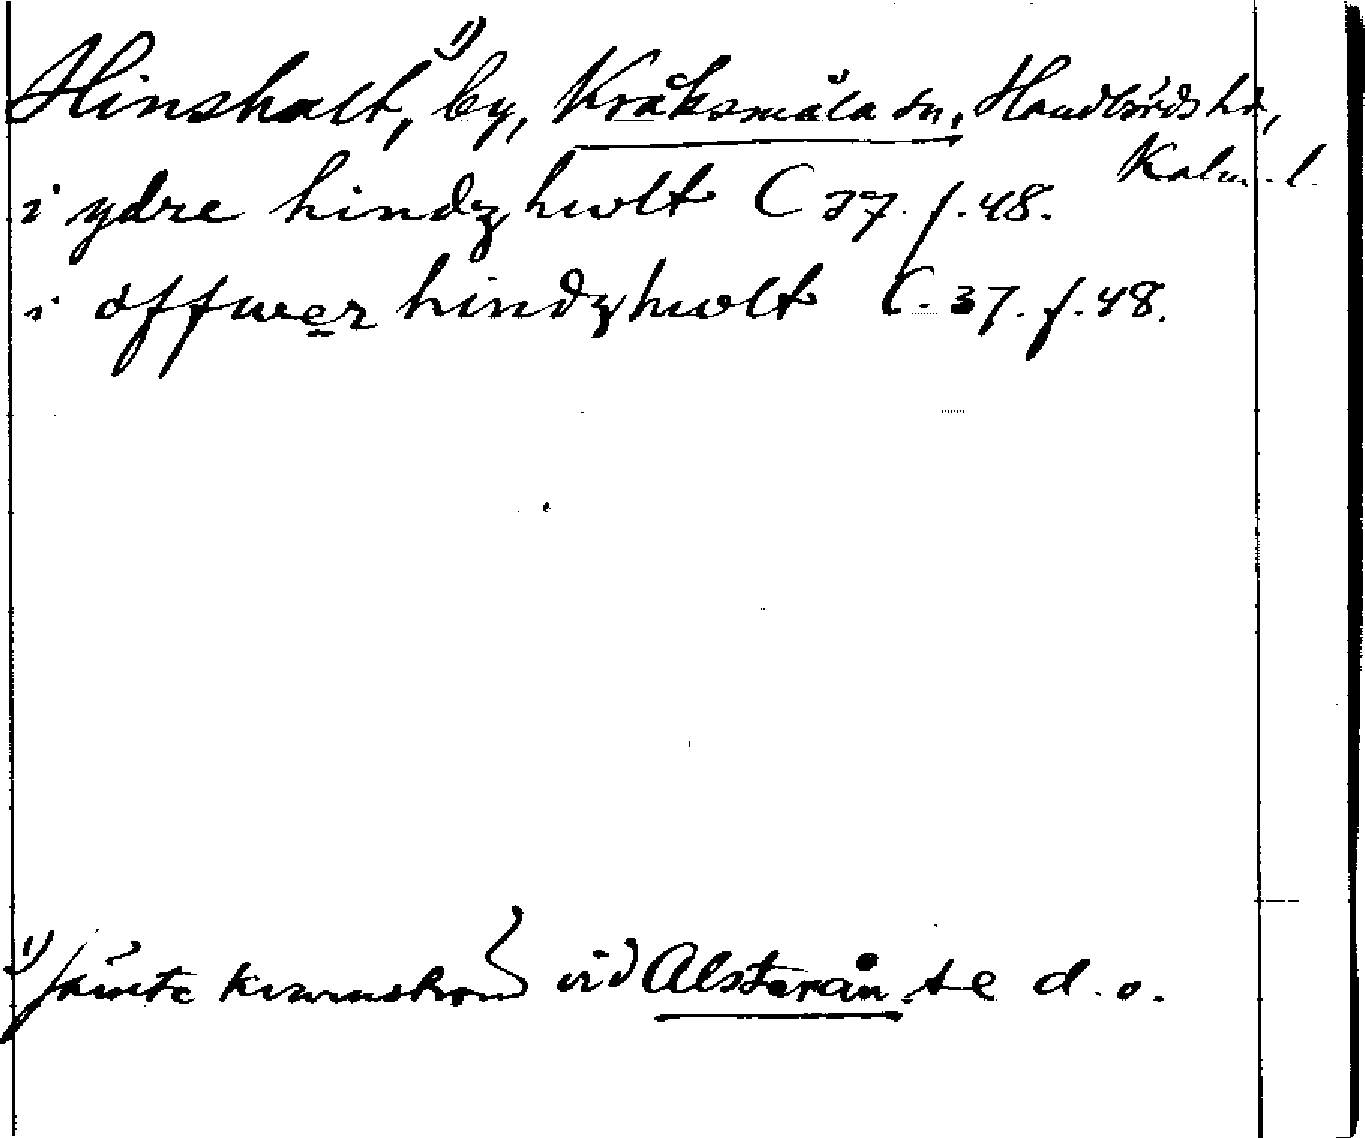 Hinshalt,¹⁾ by, Kråksmåla sn, Handbörds hd,
Kalm. l.
i ydre hindzhwlt C 37. f. 48.
i offwer hindzhwlt C. 37. f. 48.
¹⁾ jämte vid Alsterån se d. o.